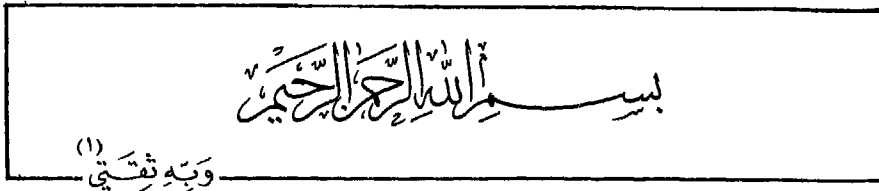 بِسْمِ اللَّهِ الرَّحْمَنِ الرَّحِيمِ
وَبِهِ ثِقَتِي (١)